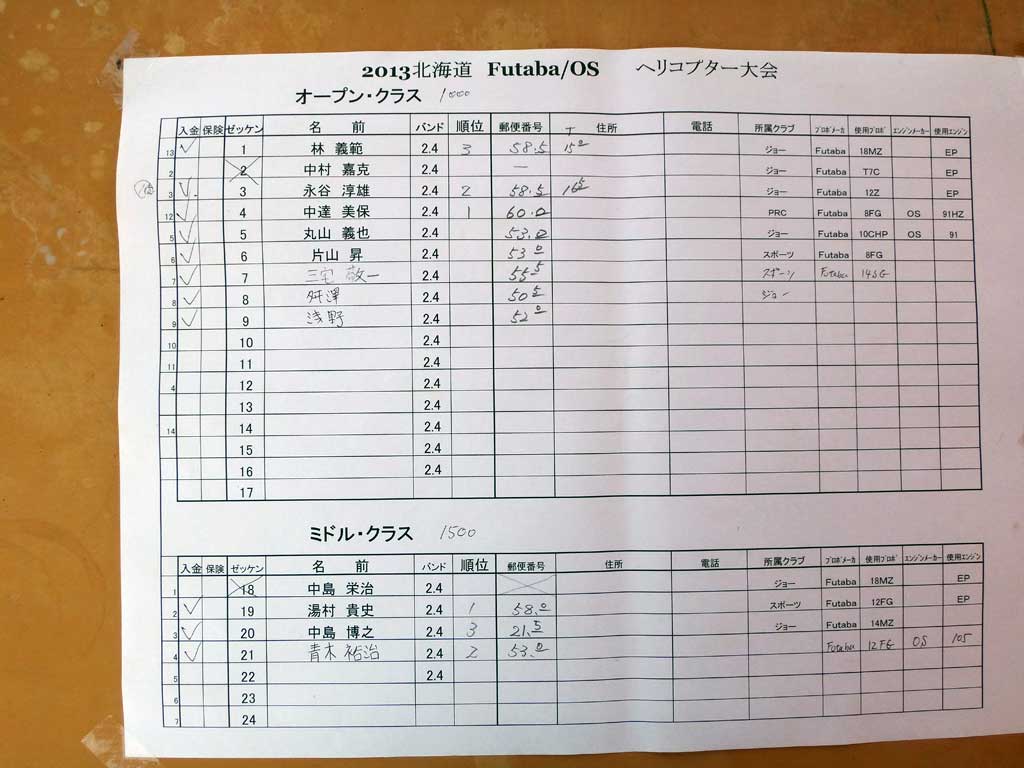 2013北海道 Futaba/OS ヘリコプター大会
オープン・クラス 1000
入金 保険 ゼッケン 名 前 バンド 順位 郵便番号 住所 電話 所属クラブ プロポメーカ 使用プロポ エンジンメーカー 使用エンジン
13 1 林 義範 2.4 3 58.5 15 ジョー Futaba 18MZ EP
2 2 中村 嘉克 2.4 — ジョー Futaba T7C EP
3 3 永谷 淳雄 2.4 2 58.5 16 ジョー Futaba 12Z EP
12 4 中達 美保 2.4 1 60.0 PRC Futaba 8FG OS 91HZ
5 5 丸山 義也 2.4 53.0 ジョー Futaba 10CHP OS 91
6 6 片山 昇 2.4 53.0 スポーツ Futaba 8FG
7 7 三宅 敬一 2.4 55.5 スポーツ Futaba 14SG
8 8 2.4 50.5 ジョー
9 9 浅野 2.4 52.0
10 10 2.4
11 11 2.4
4 12 2.4
13 2.4
14 14 2.4
15 2.4
16 2.4
17
ミドル・クラス 1500
入金 保険 ゼッケン 名 前 バンド 順位 郵便番号 住所 電話 所属クラブ プロポメーカ 使用プロポ エンジンメーカー 使用エンジン
1 18 中島 栄治 2.4 ジョー Futaba 18MZ EP
2 19 湯村 貴史 2.4 1 58.0 スポーツ Futaba 12FG EP
3 20 中島 博之 2.4 3 21.5 ジョー Futaba 14MZ
4 21 青木 祐治 2.4 2 53.0 Futaba 12FG OS 105
5 22 2.4
6 23
7 24